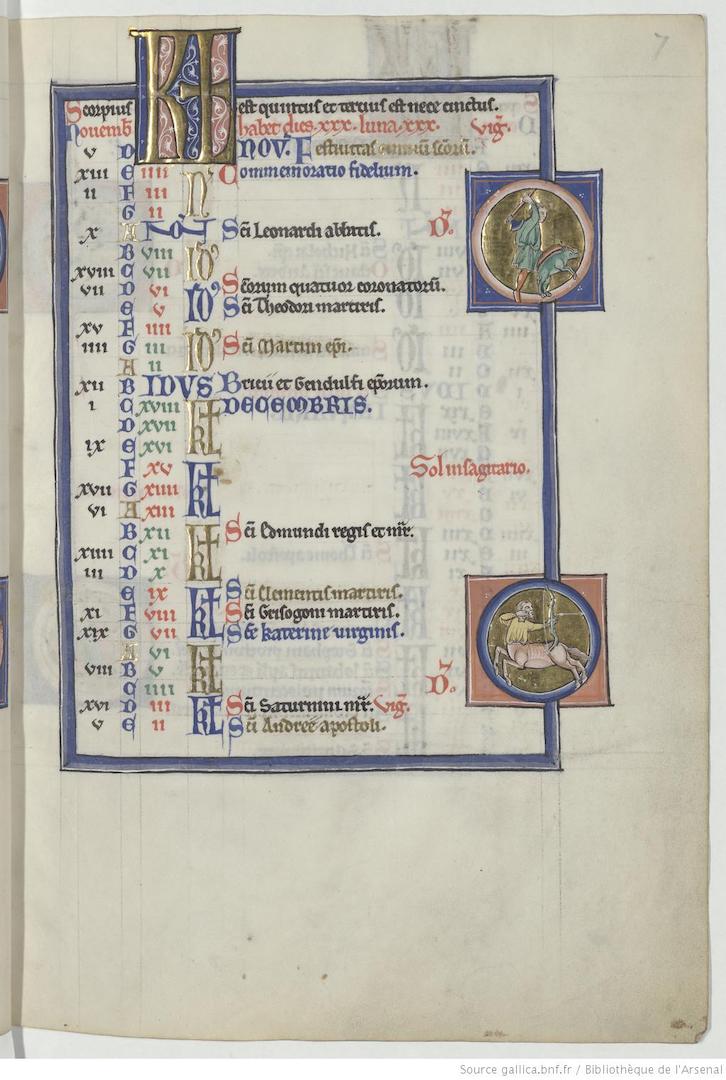 7
Scorpius KL est quintus et tercius est nece cinctus.
Novemb̄ habet dies .xxx. luna .xxx. Vig̃.
v D NOV. Festivitas omniū scōrū.
xiii E iiii N̄ Commemoratio fidelium.
ii F iii
G ii
x A NON Sc̄i Leonardi abbatis. D̄.
B viii ID'
xviii C vii Sc̄orum quatuor coronatorū.
vii D vi ID' Sc̄i Theodori martiris.
E v
xv F iiii ID'
iiii G iii Sc̄i Martini ep̄i.
A ii
xii B IDVS Bricii et Gendulfi ep̄orum.
i C xviii kl DECEMBRIS.
D xvii
ix E xvi
F xv kl Sol in sagitario.
xvii G xiiii
vi A xiii
B xii kl Sc̄i Edmundi regis et mr̄.
xiiii C xi
iii D x
E ix kl Sc̄i Clementis martiris.
xi F viii Sc̄i Grisogoni martiris.
xix G vii Sc̄e katerine virginis.
A vi kl
viii B v
C iiii D̄.
xvi D iii kl Sc̄i Saturnini mr̄. Vig̃.
v E ii Sc̄i Andree apostoli.
Source gallica.bnf.fr / Bibliothèque de l'Arsenal